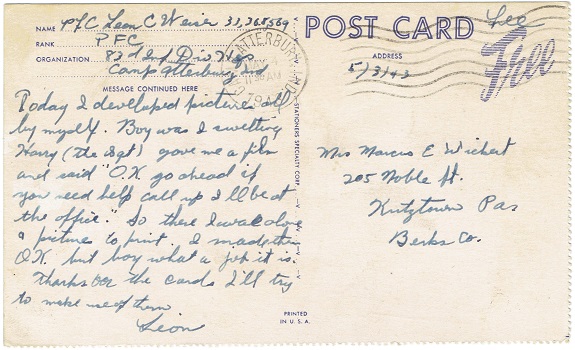 NAME PFC Leon C Weiser 33,368,569
RANK PFC
ORGANIZATION 83d Inf Div Hqs
Camp Atterbury Ind
MESSAGE CONTINUED HERE
Today I developed pictures all
by myself. Boy was I sweating
Harry (the Sgt) gave me a film
and said "O.K. go ahead if
you need help call up I'll be at
the office." So there I was alone
a picture to print. I made them
O.K. but boy what a job it is.
Thanks for the cards I'll try
to make use of them
Leon
STATIONERS SPECIALTY CORP.
PRINTED
IN U.S.A.
POST CARD
Lee
Free
ADDRESS
5/3/43
Mrs Marcus E Wichert
205 Noble St.
Kutztown Pa
Berks Co.
ATTERBURY